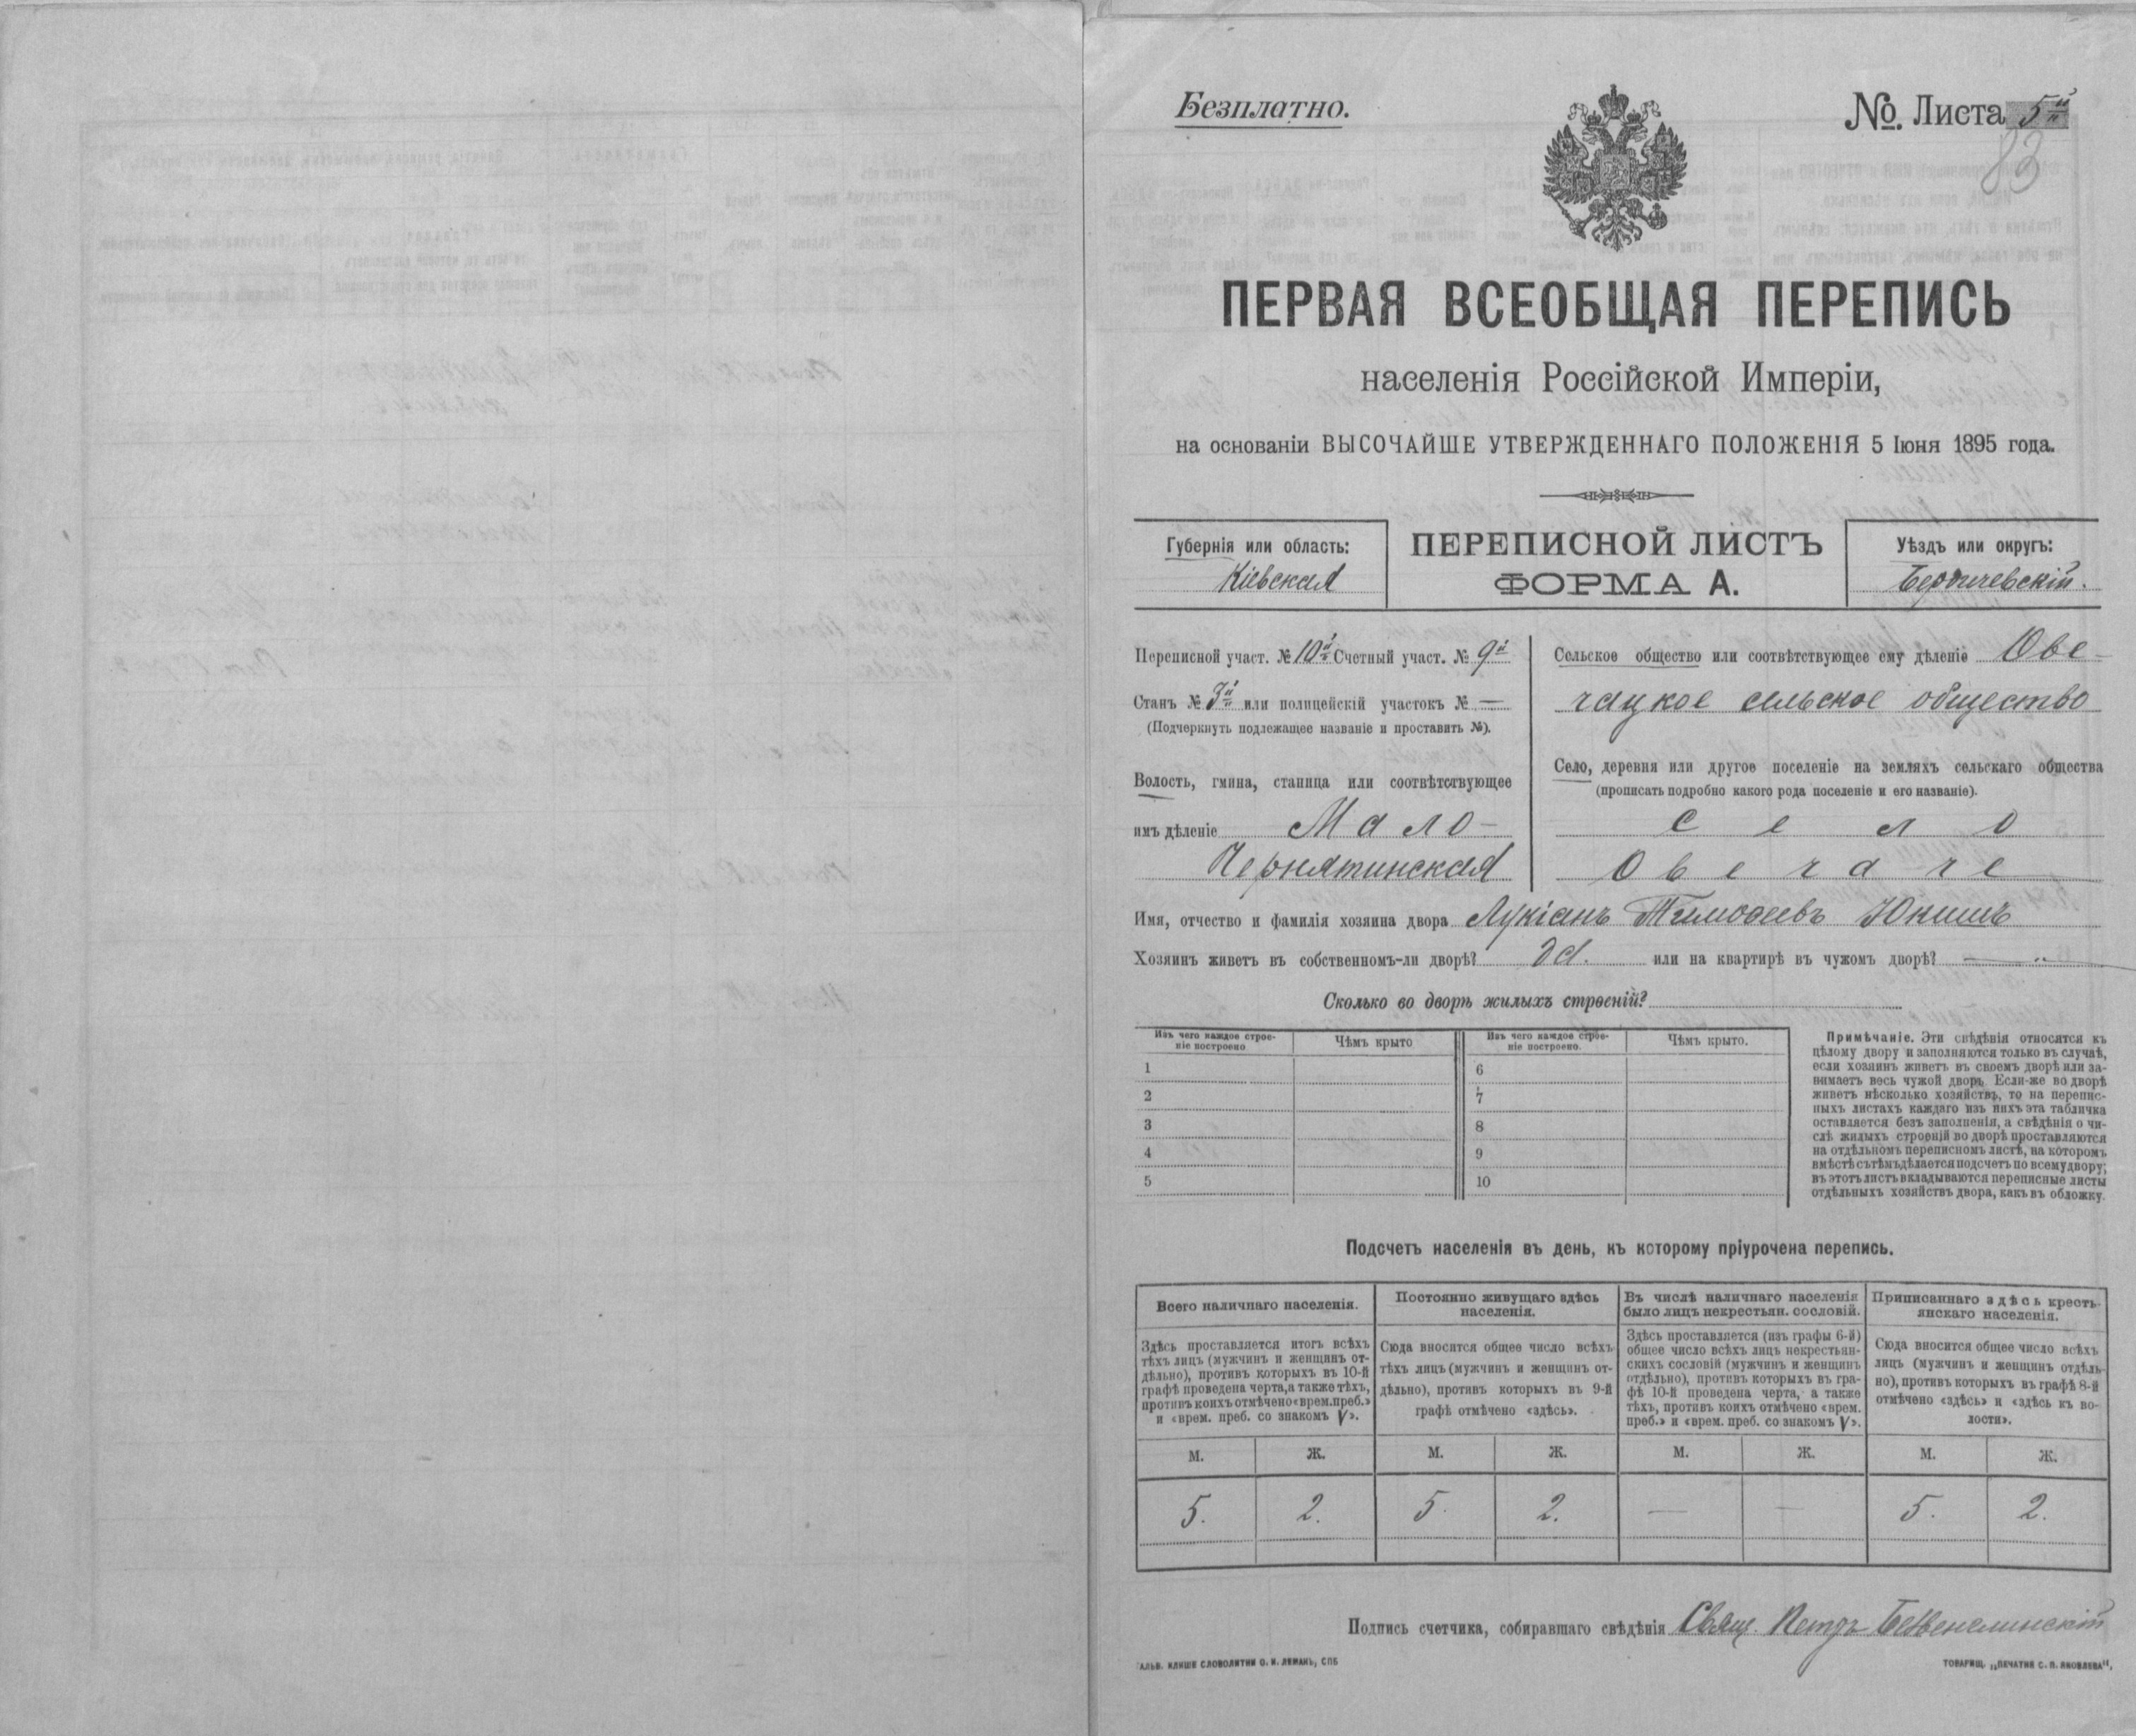 Безплатно.
№ Листа 5й
83
ПЕРВАЯ ВСЕОБЩАЯ ПЕРЕПИСЬ
населенія Россійской Имперіи,
на основаніи ВЫСОЧАЙШЕ УТВЕРЖДЕННАГО ПОЛОЖЕНІЯ 5 Іюня 1895 года.
Губернія или область:
Кіевская
ПЕРЕПИСНОЙ ЛИСТЪ
ФОРМА А.
Уѣздъ или округъ:
Бердичевскій.
Переписной участ. № 10й Счетный участ. № 9й
Станъ № 3й или полицейскій участокъ № —
(Подчеркнуть подлежащее названіе и проставить №).
Волость, гмина, станица или соотвѣтствующее
имъ дѣленіе Мало-
Чернятинская
Сельское общество или соотвѣтствующее ему дѣленіе Ове-
чацкое сельское общество
Село, деревня или другое поселеніе на земляхъ сельскаго общества
(прописать подробно какого рода поселеніе и его названіе).
Село
Овечаче
Имя, отчество и фамилія хозяина двора Лукіанъ Тимофеевъ Юкишъ
Хозяинъ живетъ въ собственномъ-ли дворѣ? да. или на квартирѣ въ чужомъ дворѣ? —
Сколько во дворѣ жилыхъ строеній?
Изъ чего каждое строе-
ніе построено
Чѣмъ крыто
Изъ чего каждое строе-
ніе построено.
Чѣмъ крыто.
1 6
2 7
3 8
4 9
5 10
Примѣчаніе. Эти свѣдѣнія относятся къ
цѣлому двору и заполняются только въ случаѣ,
если хозяинъ живетъ въ своемъ дворѣ или за-
нимаетъ весь чужой дворъ. Если-же во дворѣ
живетъ нѣсколько хозяйствъ, то на перепис-
ныхъ листахъ каждаго изъ нихъ эта табличка
оставляется безъ заполненія, а свѣдѣнія о чи-
слѣ жилыхъ строеній во дворѣ проставляются
на отдѣльномъ переписномъ листѣ, на которомъ
вмѣстѣ съ тѣмъ дѣлается подсчетъ по всему двору;
въ этотъ листъ вкладываются переписные листы
отдѣльныхъ хозяйствъ двора, какъ въ обложку.
Подсчетъ населенія въ день, къ которому пріурочена перепись.
Всего наличнаго населенія.
Здѣсь проставляется итогъ всѣхъ
тѣхъ лицъ (мужчинъ и женщинъ от-
дѣльно), противъ которыхъ въ 10-й
графѣ проведена черта, а также тѣхъ,
противъ коихъ отмѣчено «врем. преб.»
и «врем. преб. со знакомъ V».
Постоянно живущаго здѣсь
населенія.
Сюда вносится общее число всѣхъ
тѣхъ лицъ (мужчинъ и женщинъ от-
дѣльно), противъ которыхъ въ 9-й
графѣ отмѣчено «здѣсь».
Въ числѣ наличнаго населенія
было лицъ некрестьян. сословій.
Здѣсь проставляется (изъ графы 6-й)
общее число всѣхъ лицъ некрестьян-
скихъ сословій (мужчинъ и женщинъ
отдѣльно), противъ которыхъ въ гра-
фѣ 10-й проведена черта, а также
тѣхъ, противъ коихъ отмѣчено «врем.
преб.» и «врем. преб. со знакомъ V».
Приписаннаго здѣсь кресть-
янскаго населенія.
Сюда вносится общее число всѣхъ
лицъ (мужчинъ и женщинъ отдѣль-
но), противъ которыхъ въ графѣ 8-й
отмѣчено «здѣсь» и «здѣсь къ во-
лости».
М. Ж. М. Ж. М. Ж. М. Ж.
5. 2. 5. 2. — — 5. 2.
Подпись счетчика, собиравшаго свѣдѣнія Свящ. Петръ
АЛЬВ. КЛИШЕ СЛОВОЛИТНИ О. И. ЛЕМАНЪ, СПБ
ТОВАРИЩ. „ПЕЧАТНЯ С. П. ЯКОВЛЕВА",